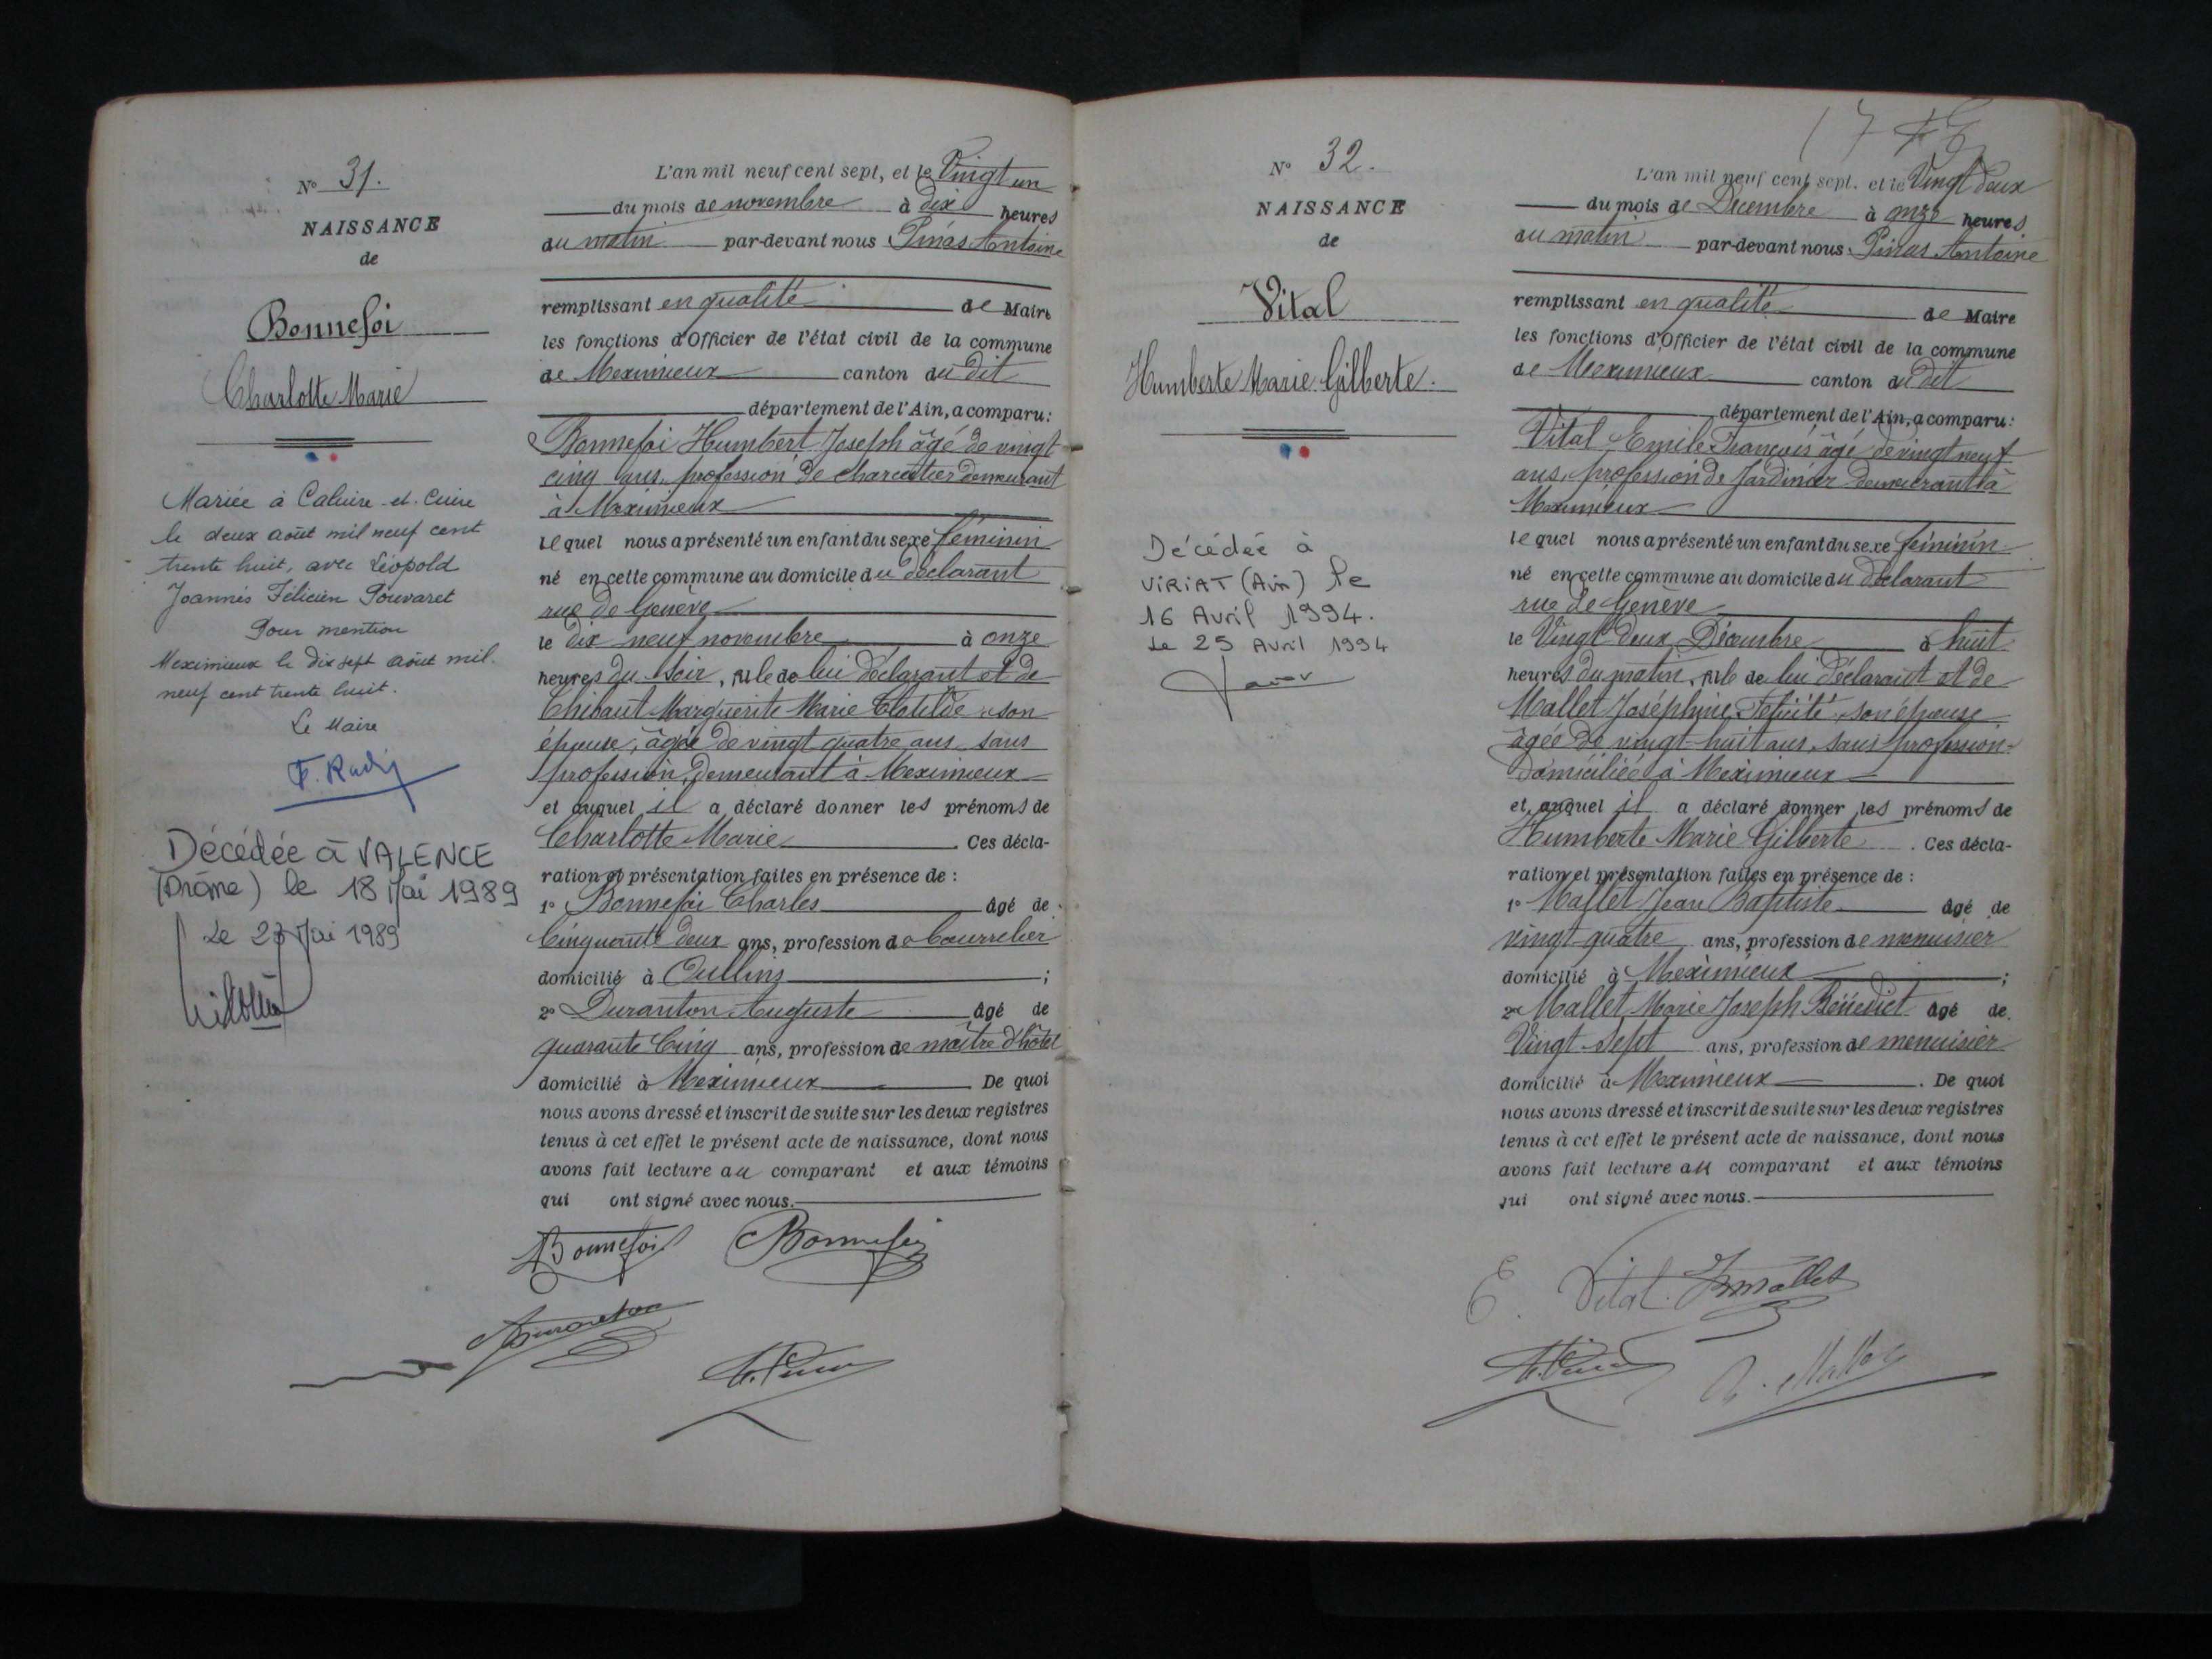 N° 31.
NAISSANCE
de
Bonnefoi
Charlotte Marie
Mariée à Caluire-et-Cuire
le deux août mil neuf cent
trente huit, avec Léopold
Joannès Félicien Pouvaret
Pour mention
Meximieux le dix sept août mil
neuf cent trente huit.
Le Maire
Décédée à VALENCE
(Drôme) le 18 Mai 1989
Le 23 Mai 1989
L'an mil neuf cent sept, et le Vingt un
du mois de novembre à dix heures
du matin par-devant nous Pinas Antoine
remplissant en qualité de Maire
les fonctions d'Officier de l'état civil de la commune
de Meximieux canton du dit
département de l'Ain, a comparu:
Bonnefoi Humbert Joseph âgé de vingt
cinq ans, profession de charcutier demeurant
à Meximieux
lequel nous a présenté un enfant du sexe féminin
né en cette commune au domicile du déclarant
rue de Genève
le dix neuf novembre à onze
heures du soir, fille de lui déclarant et de
Thibaut Marguerite Marie Clotilde son
épouse, âgée de vingt quatre ans sans
profession, demeurant à Meximieux
et auquel il a déclaré donner les prénoms de
Charlotte Marie. Ces décla-
ration et présentation faites en présence de :
1° Bonnefoi Charles âgé de
Cinquante deux ans, profession de Bourrelier
domicilié à Oullins ;
2° Duranton Auguste âgé de
quarante Cinq ans, profession de maître d'hôtel
domicilié à Meximieux. De quoi
nous avons dressé et inscrit de suite sur les deux registres
tenus à cet effet le présent acte de naissance, dont nous
avons fait lecture au comparant et aux témoins
qui ont signé avec nous.
Bonnefoi Bonnefoi
Duranton
N° 32.
NAISSANCE
de
Vital
Humberte Marie Gilberte.
Décédée à
VIRIAT (Ain) le
16 Avril 1994.
Le 25 Avril 1994
L'an mil neuf cent sept, et le Vingt deux
du mois de Décembre à onze heures
du matin par-devant nous Pinas Antoine
remplissant en qualité de Maire
les fonctions d'Officier de l'état civil de la commune
de Meximieux canton du dit
département de l'Ain, a comparu:
Vital Emile François âgé de vingt neuf
ans, profession de Jardinier demeurant à
Meximieux
lequel nous a présenté un enfant du sexe féminin
né en cette commune au domicile du déclarant
rue de Genève
le Vingt deux Décembre à huit
heures du matin, fille de lui déclarant et de
Mallet Joséphine Félicité, son épouse
âgée de vingt-huit ans, sans profession
domiciliée à Meximieux
et auquel il a déclaré donner les prénoms de
Humberte Marie Gilberte. Ces décla-
ration et présentation faites en présence de :
1° Mallet Jean Baptiste âgé de
vingt quatre ans, profession de menuisier
domicilié à Meximieux ;
2° Mallet Marie Joseph Bénédict âgé de
Vingt Sept ans, profession de menuisier
domicilié à Meximieux. De quoi
nous avons dressé et inscrit de suite sur les deux registres
tenus à cet effet le présent acte de naissance, dont nous
avons fait lecture au comparant et aux témoins
qui ont signé avec nous.
E. Vital. Mallet
Mallet